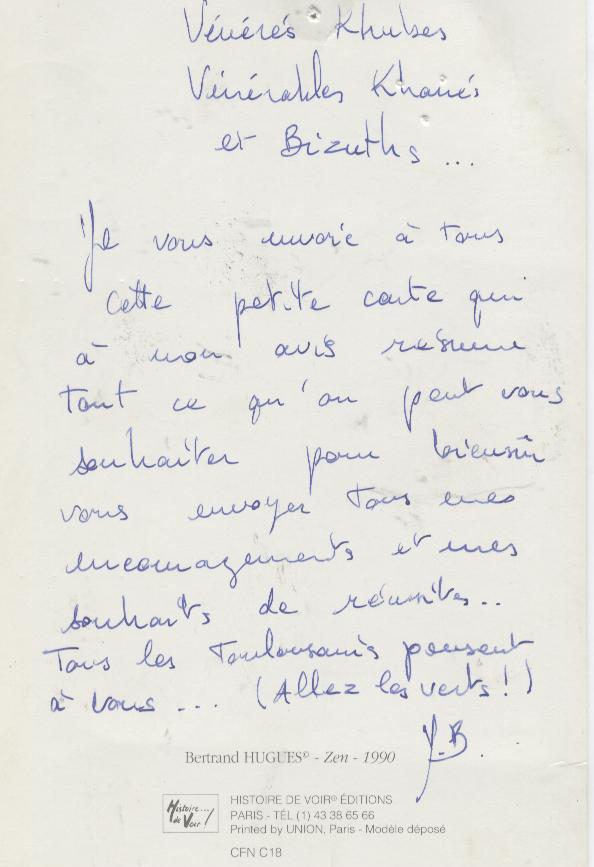 Vénérés Khubes
Vénérables Kharrés
et Bizuths ...
Je vous envoie à tous
cette petite carte qui
à mon avis résume
tout ce qu'on peut vous
souhaiter pour biensûr
vous envoyer tous mes
encouragements et mes
souhaits de réussites..
Tous les Toulousains pensent
à vous ... (Allez les verts!)
Y.B.
Bertrand HUGUES© - Zen - 1990
Histoire... de Voir!
HISTOIRE DE VOIR® ÉDITIONS
PARIS - TÉL (1) 43 38 65 66
Printed by UNION, Paris - Modèle déposé
CFN C18